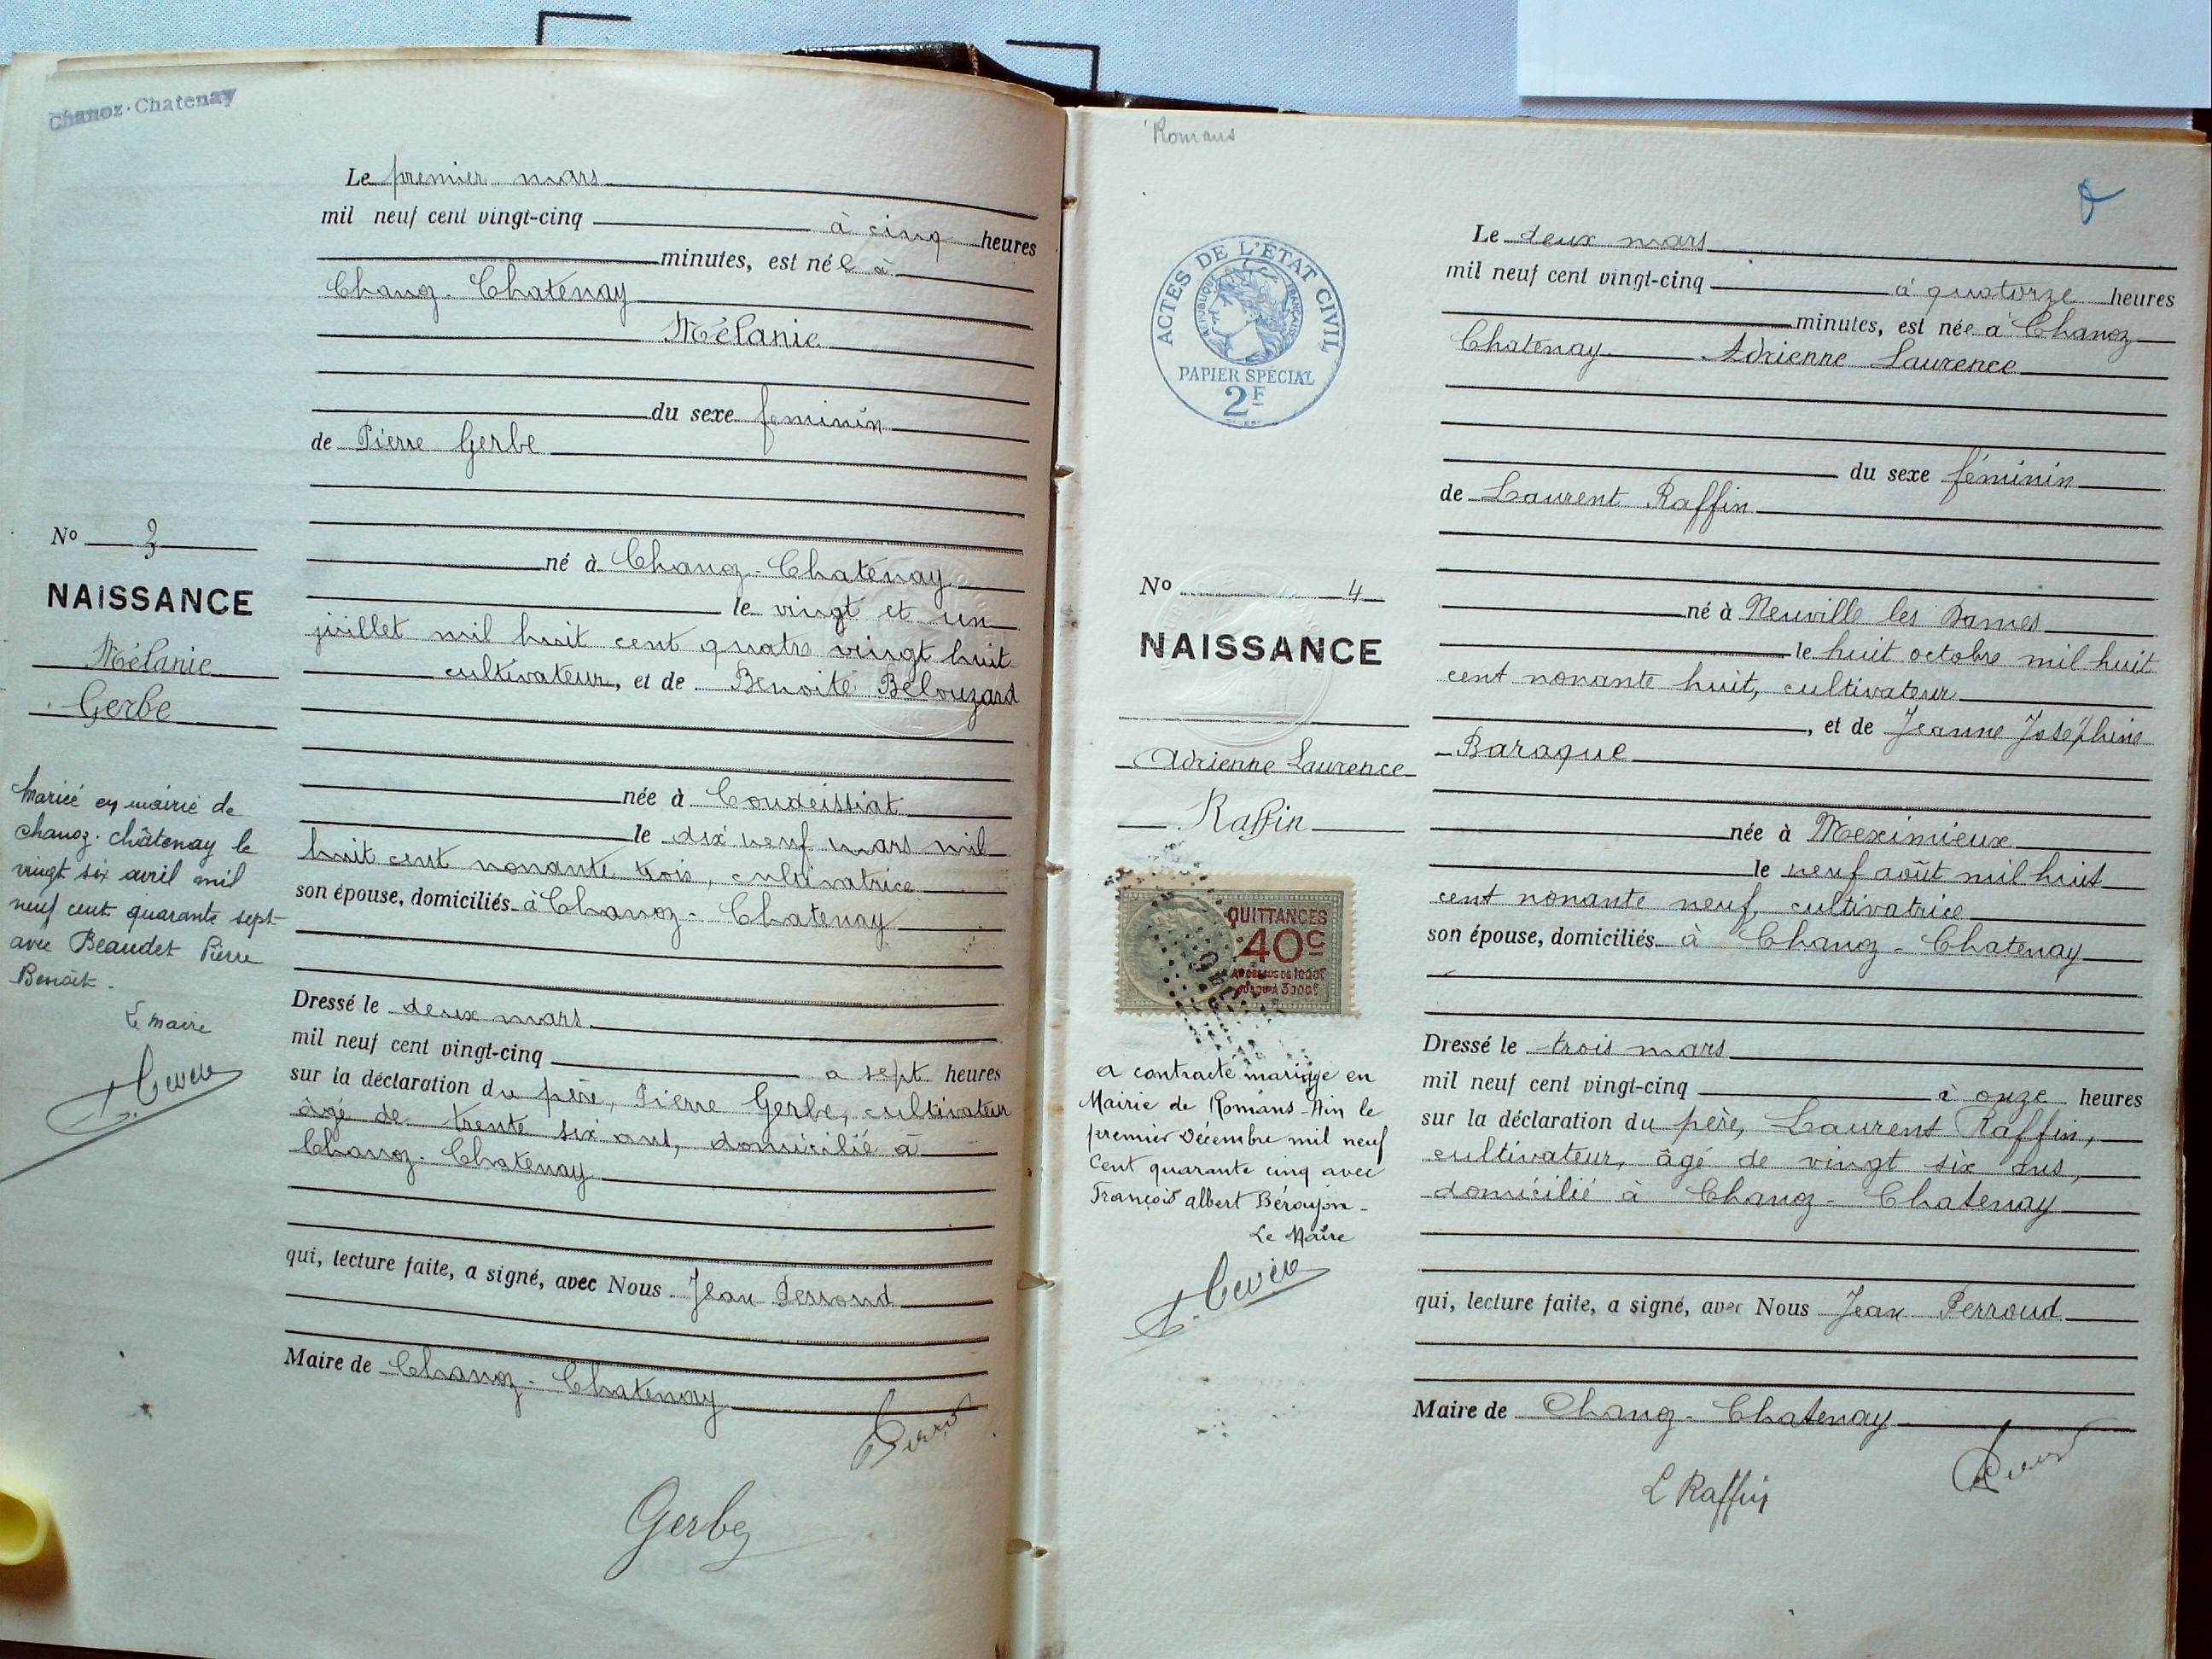 Chanoz-Chatenay
Le premier mars
mil neuf cent vingt-cinq à cinq heures
minutes, est née à
Chanoz-Chatenay
Mélanie
du sexe feminin
de Pierre Gerbe
né à Chanoz-Chatenay
le vingt et un
juillet mil huit cent quatre vingt huit
cultivateur, et de Benoite Belouzard
née à Condeissiat
le dix neuf mars mil
huit cent nonante trois, cultivatrice
son épouse, domiciliés à Chanoz-Chatenay
Dressé le deux mars
mil neuf cent vingt-cinq à sept heures
sur la déclaration du père, Pierre Gerbe, cultivateur
âgé de trente six ans, domicilié à
Chanoz-Chatenay
qui, lecture faite, a signé, avec Nous Jean Perroud
Maire de Chanoz-Chatenay
Gerbe
No 3
NAISSANCE
Mélanie
Gerbe
Mariée en mairie de
Chanoz-Châtenay le
vingt six avril mil
neuf cent quarante sept
avec Beaudet Pierre
Benoît.
Le Maire
Romans
ACTES DE L'ÉTAT CIVIL
RÉPUBLIQUE FRANÇAISE
PAPIER SPÉCIAL
2F
Le deux mars
mil neuf cent vingt-cinq à quatorze heures
minutes, est née à Chanoz
Chatenay Adrienne Laurence
du sexe féminin
de Laurent Raffin
né à Neuville les Dames
le huit octobre mil huit
cent nonante huit, cultivateur
, et de Jeanne Joséphine
Baraque
née à Meximieux
le neuf août mil huit
cent nonante neuf, cultivatrice
son épouse, domiciliés à Chanoz-Chatenay
Dressé le trois mars
mil neuf cent vingt-cinq à onze heures
sur la déclaration du père, Laurent Raffin,
cultivateur, âgé de vingt six ans,
domicilié à Chanoz-Chatenay
qui, lecture faite, a signé, avec Nous Jean Perroud
Maire de Chanoz-Chatenay
L Raffin
No 4
NAISSANCE
Adrienne Laurence
Raffin
QUITTANCES
40c
a contracté mariage en
Mairie de Romans-Ain le
premier Décembre mil neuf
Cent quarante cinq avec
François albert Bérayon-
Le Maire